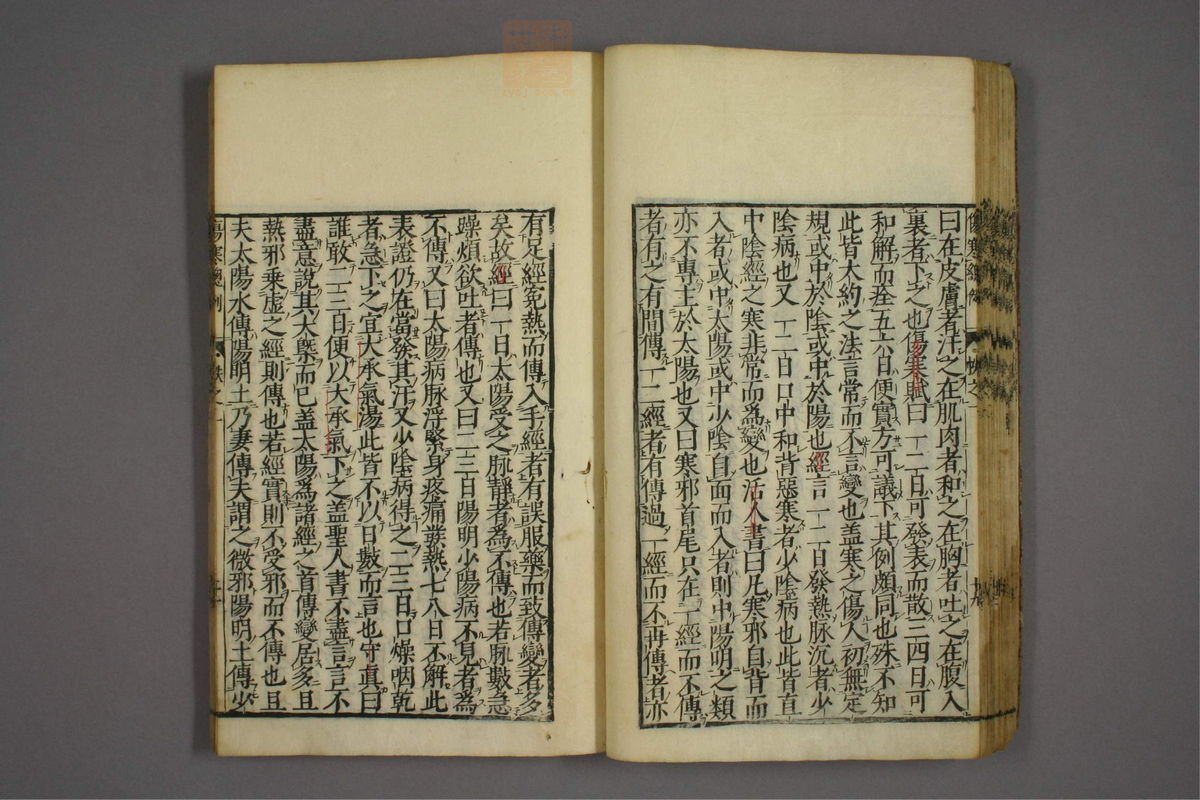 曰在皮膚者汗之在肌肉者和之在胸者吐之在腹入
裏者下之也傷寒賦曰一二日可發表而散三四日可
和解而痊五六日便實方可議下其例頗同也殊不知
此皆大約之法言常而不言變也盖寒之傷人初無定
規或中於陰或中於陽也經言一二日發熱脉沉者少
陰病也又一二日口中和背惡寒者少陰病也此皆直
中陰經之寒非常而爲變也活人書曰凡寒邪自背而
入者或中太陽或中少陰自面而入者則中陽明之類
亦不專主於太陽也又曰寒邪首尾只在一經而不傳
者有之有間傳一二經者有傳過一經而不再傳者亦
有足經冤熱而傳入手經者有誤服藥而致傳變者多
矣故經曰一日太陽受之脉靜者爲不傳也若脉數急
躁煩欲吐者傳也又曰二三日陽明少陽病不見者爲
不傳又曰太陽病脉浮緊身疼痛發熱七八日不解此
表證仍在當發其汗又少陰病得之二三日口燥咽乾
者急下之宜大承氣湯此皆不以日數而言也守眞曰
誰敢二三日便以大承氣下之盖聖人書不盡言言不
盡意說其大槩而已盖太陽爲諸經之首傳變居多且
熱邪乘虛之經則傳也若經實則不受邪而不傳也且
夫太陽水傳陽明土乃妻傳夫謂之微邪陽明土傳少